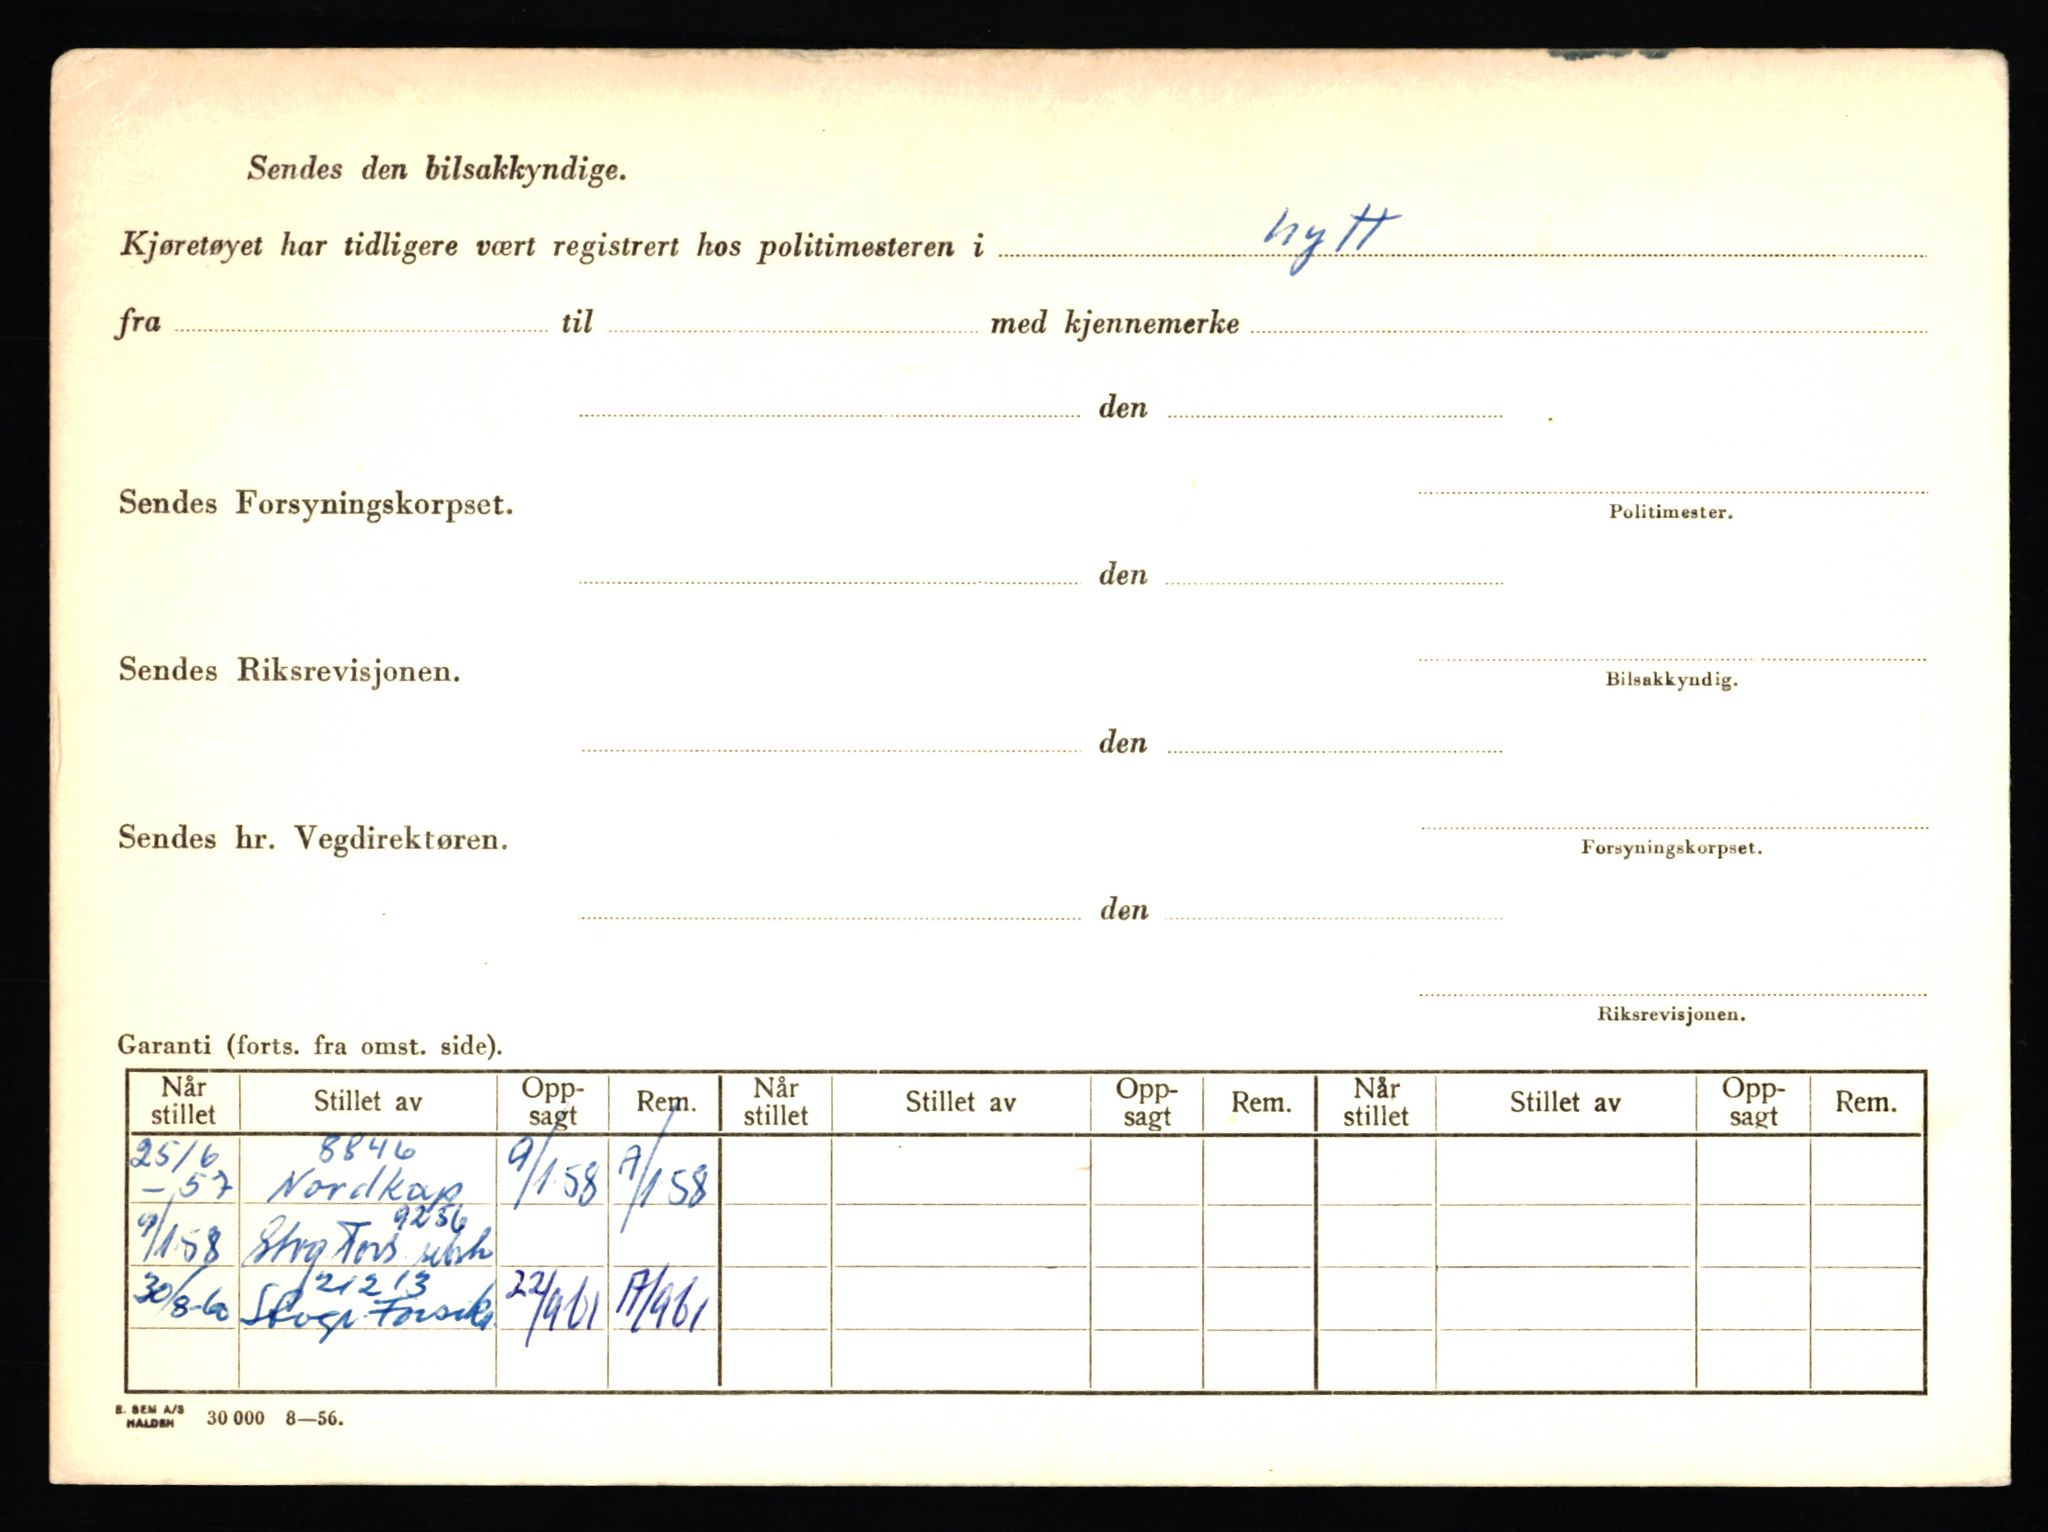 Sendes den bilsakkyndige.
Kjøretøyet har tidligere vært registrert hos politimesteren i nytt
fra til med kjennemerke
den
Sendes Forsyningskorpset.
Politimester.
den
Sendes Riksrevisjonen.
Bilsakkyndig.
den
Sendes hr. Vegdirektøren.
Forsyningskorpset.
den
Riksrevisjonen.
Garanti (forts. fra omst. side).
Når stillet Stillet av Opp-sagt Rem. Når stillet Stillet av Opp-sagt Rem. Når stillet Stillet av Opp-sagt Rem.
25/6 8846 9/1 58 7/1 58
-57 Nordkap
9/1 58 9236
Fors
30/8-60 21213 22/9 61 17/9 61
E. SEM A/S
HALDEN 30 000 8—56.